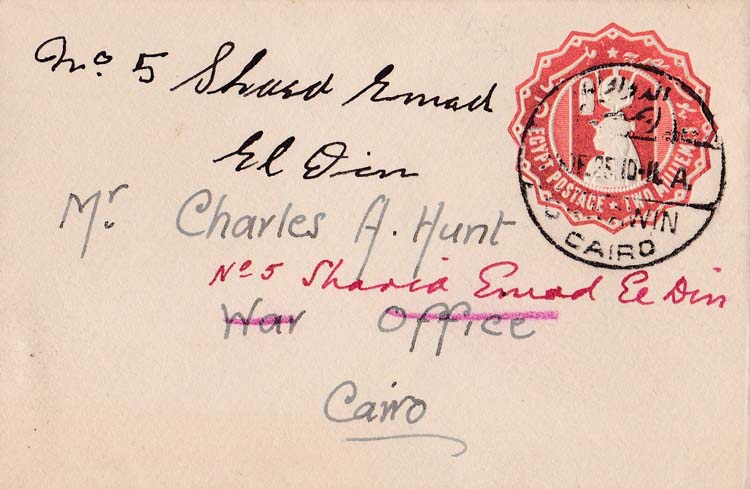 No. 5 Sharia Emad
El Din
Mr. Charles A. Hunt
No. 5 Sharia Emad El Din
War Office
Cairo
EGYPT POSTAGE ★ TWO MILLIEMES
25 10-11 A
CAIRO